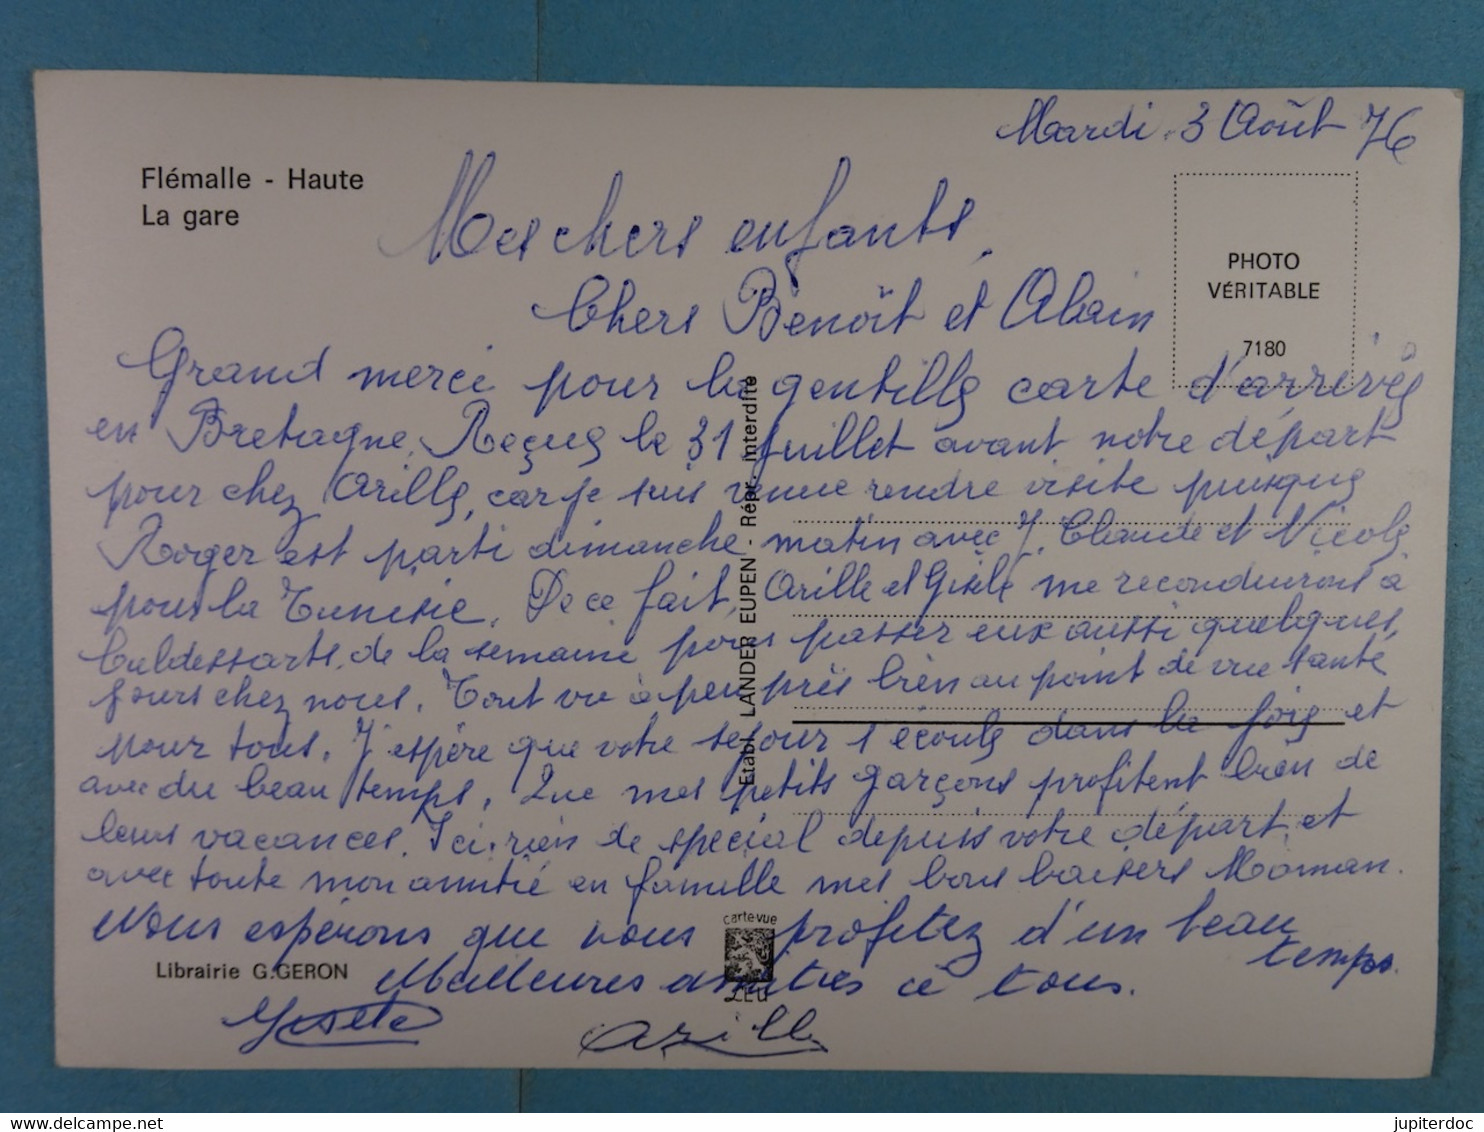 Mardi 3 Août 76
Flémalle - Haute
La gare
Mes chers enfants,
PHOTO
VÉRITABLE
7180
Chers Benoît et Alain
Grand merci pour la gentille carte d'arrivée
en Bretagne. Reçue le 31 Juillet avant notre départ
pour chez Arille, car je suis venue rendre visite puisque
Roger est parti dimanche matin avec J. Claude et Nicole
pour la Tunisie. De ce fait, Arille et Gisèle me reconduiront à
Culdessarts de la semaine pour passer eux aussi quelques
jours chez nous. Tout va à peu près bien au point de vue santé
pour tous. J'espère que votre séjour s'écoule dans la joie et
avec du beau temps. Que mes petits garçons profitent bien de
leurs vacances. Ici, rien de spécial depuis votre départ, et
avec toute mon amitié en famille mes bons baisers Maman.
Nous espérons que vous profitez d'un beau
temps.
Meilleures amitiés à tous.
Gisèle
Arille
Librairie G. GERON
Etabl. LANDER EUPEN - Répr. interdite
carte-vue
LEU
jupiterdoc